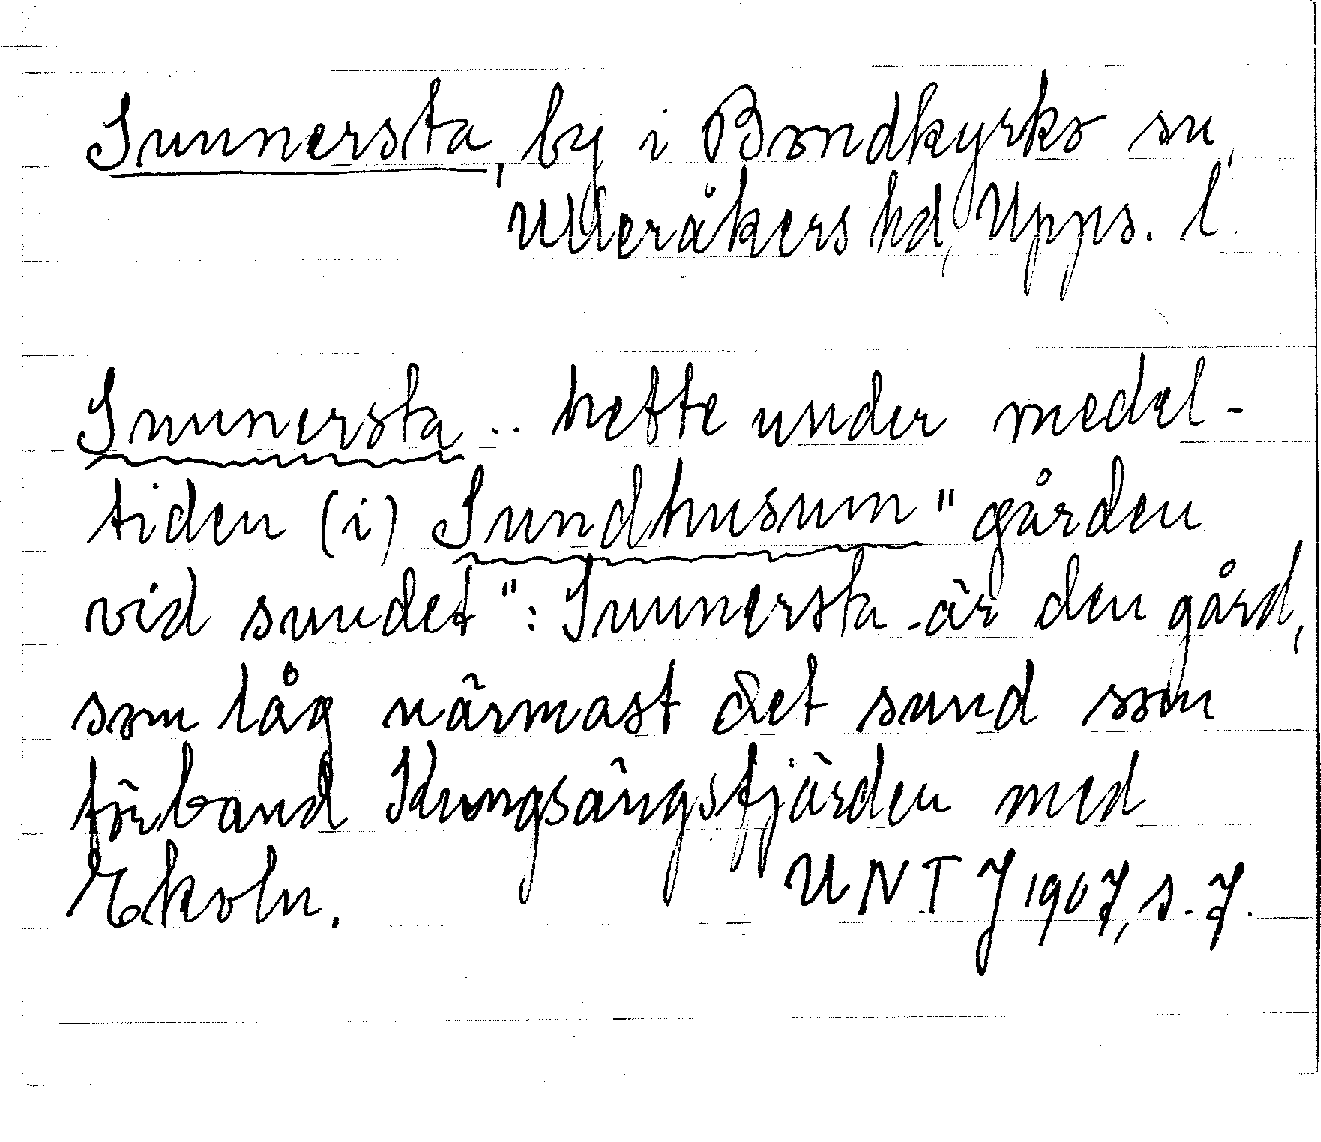 Sunnersta, by i Bondkyrko sn,
Ulleråkers hd, Upps. l.
Sunnersta .. hette under medel-
tiden (i) Sundhusum "gården
vid sundet": Sunnersta är den gård,
som låg närmast det sund som
förband Kungsängsfjärden med
Ekoln. UNT J 1907, s. 7.